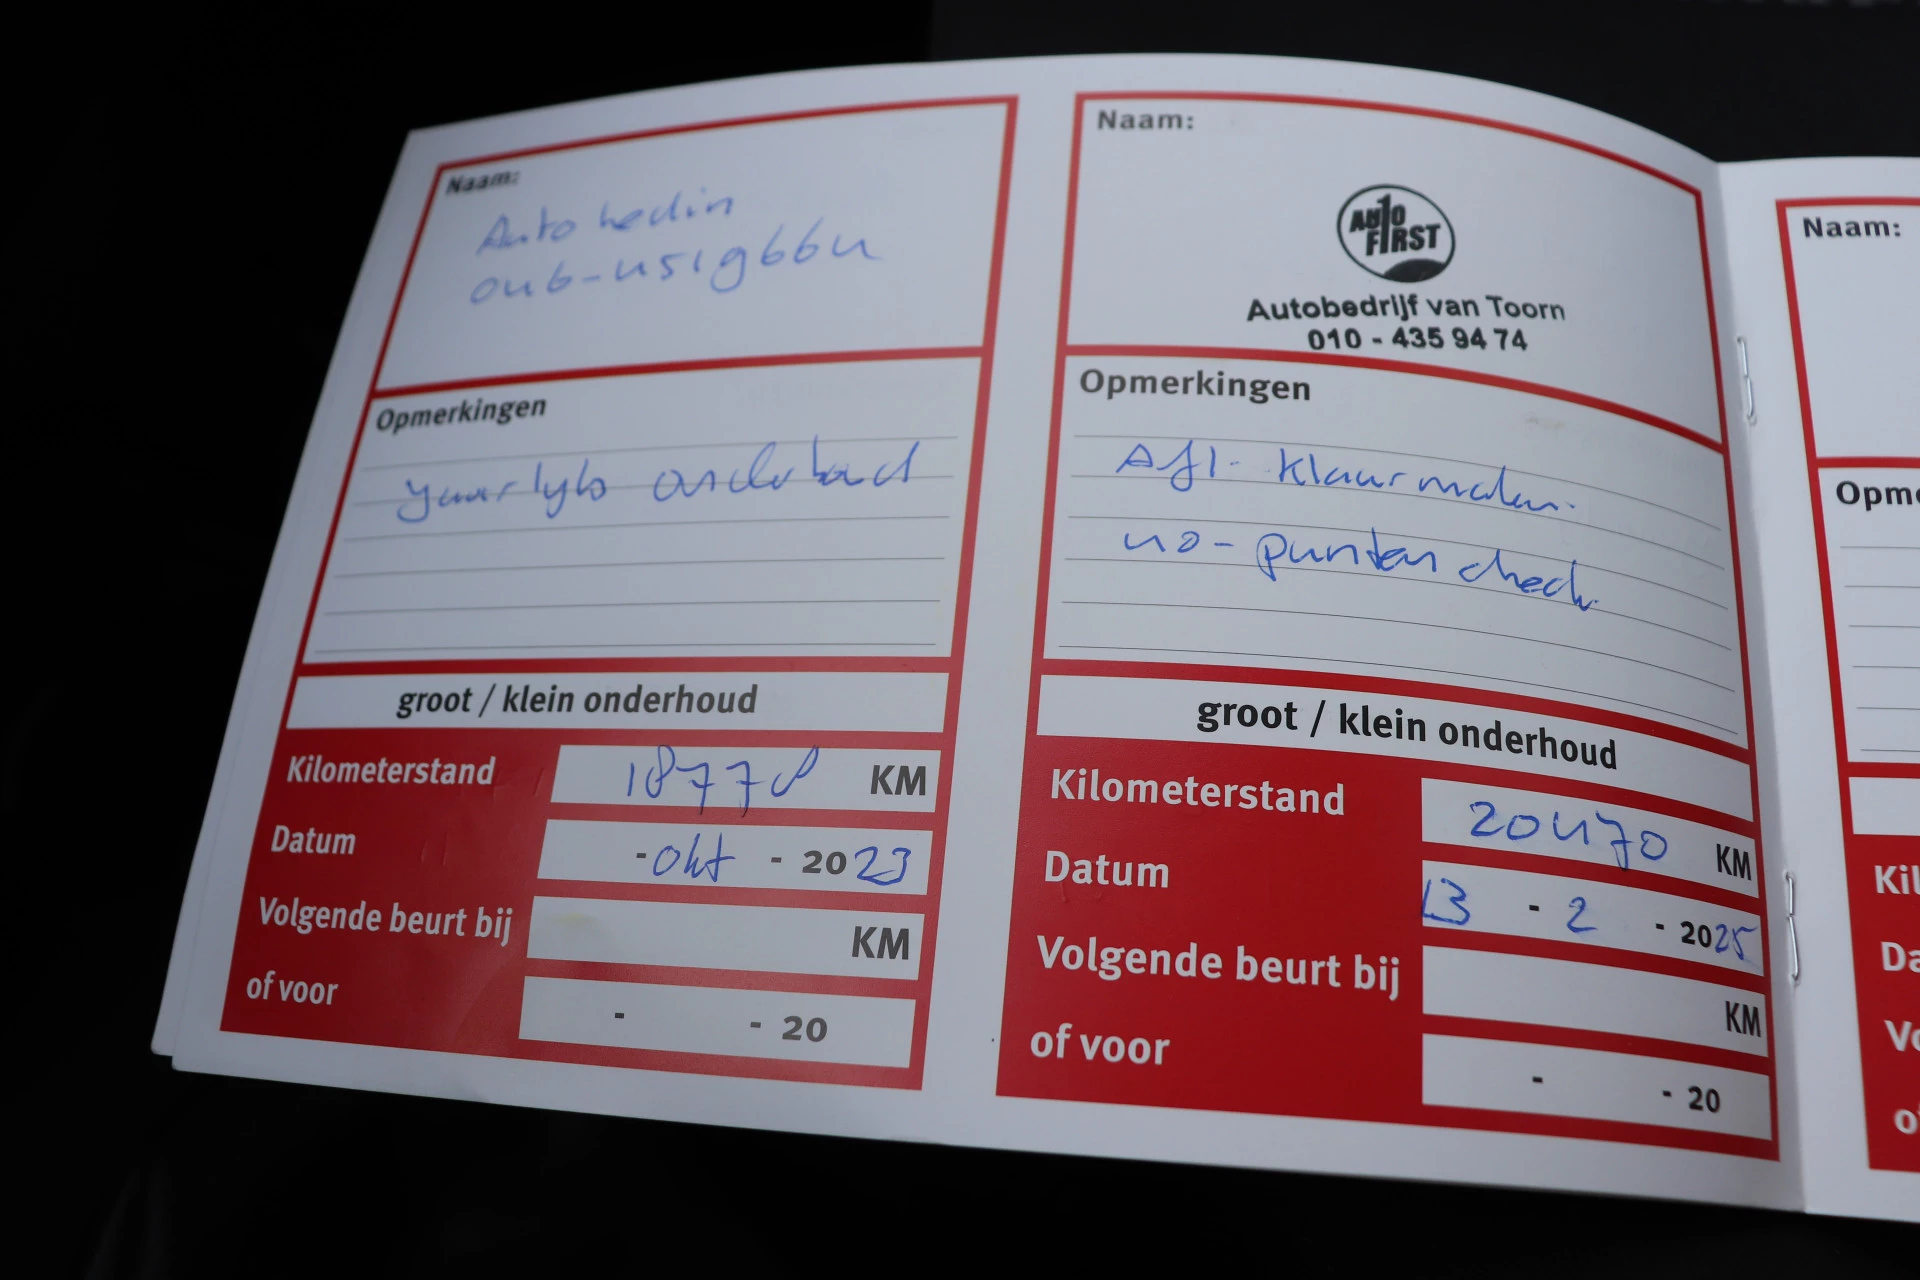 Naam:
Auto hedin
046-4519664
Opmerkingen
Jaarlyks onderhoud
groot / klein onderhoud
Kilometerstand 18778 KM
Datum - okt - 2023
Volgende beurt bij KM
of voor - - 20
Naam:
AUTO
FIRST
Autobedrijf van Toorn
010 - 435 94 74
Opmerkingen
Afl. Klaarmaken.
40-punten check
groot / klein onderhoud
Kilometerstand 20470 KM
Datum 13 - 2 - 2025
Volgende beurt bij KM
of voor - - 20
Naam:
Opme
Kil
Da
Vo
o